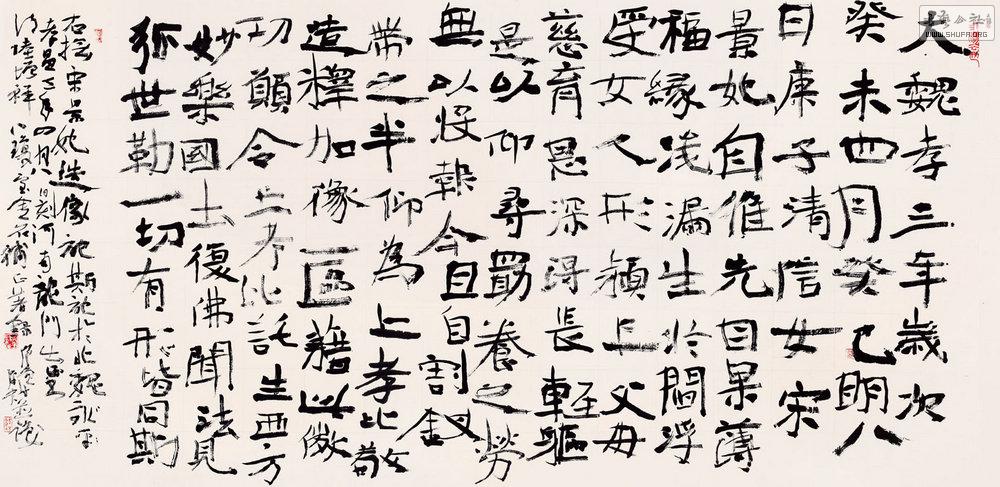 大魏孝三年歲次
癸未四月癸巳明八
日庚子清信女宋
景妃自惟先因果薄
福緣浅漏生於閻浮
受女人形頴上父母
慈育恩深得長軽軀
是以仰尋勛養之勞
無以投報今且自割釵
帶之半仰為亡考比敬
造釋加像一區藉以微
功願令亡考比託生西方
妙樂國土復佛聞法見
弥世勒一切有形皆同斯
宋景妃造像記斯記於北魏
孝昌三年四月八日刻河南龍門
WWW.SHUFA.ORG